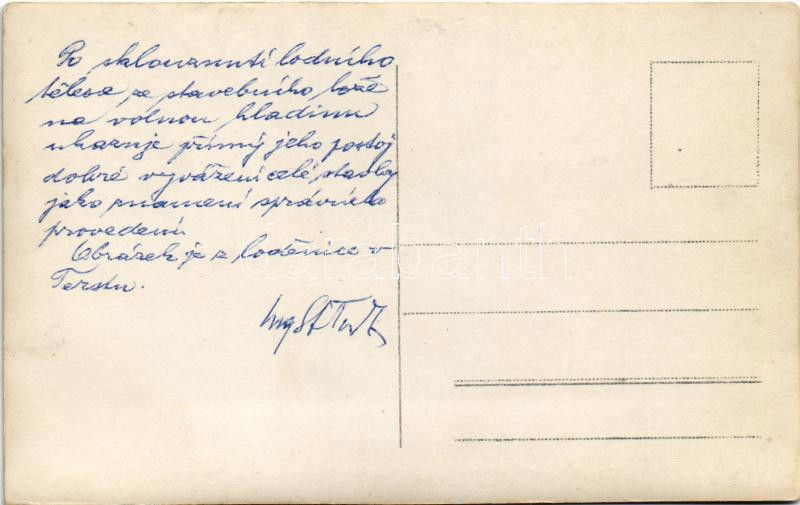 Po sklouznutí lodního
tělesa ze stavebního lože
na volnou hladinu
ukazuje přímý jeho postoj
dobré vyvážení celé stavby
jako znamení správného
provedení.
Obrázek je z loděnice v
Terstu.
Ing
darabanth